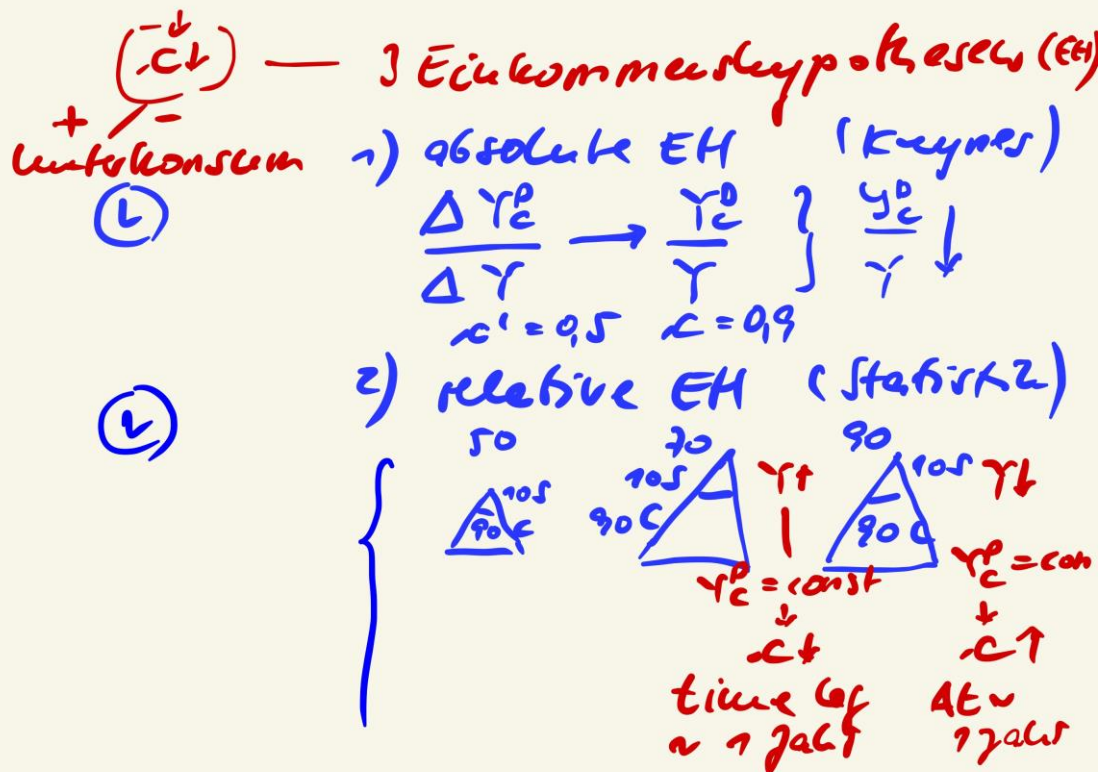 (c↓) — 3 Einkommenshypothesen (EH)
+ -
Unterkonsum
1) absolute EH (Keynes)
L
Δ Y_C^D / Δ Y → Y_C^D / Y } Y_C^D / Y ↓
c' = 0,5 c = 0,9
2) relative EH (Statistik)
50 70 90
10S 10S Y↑ 10S Y↓
90 C 90 C 90 C
Y_C^D = const Y_C^D = con
↓ ↓
c↓ c↑
time lag Δt ~
~ 1 Jahr 1 Jahr